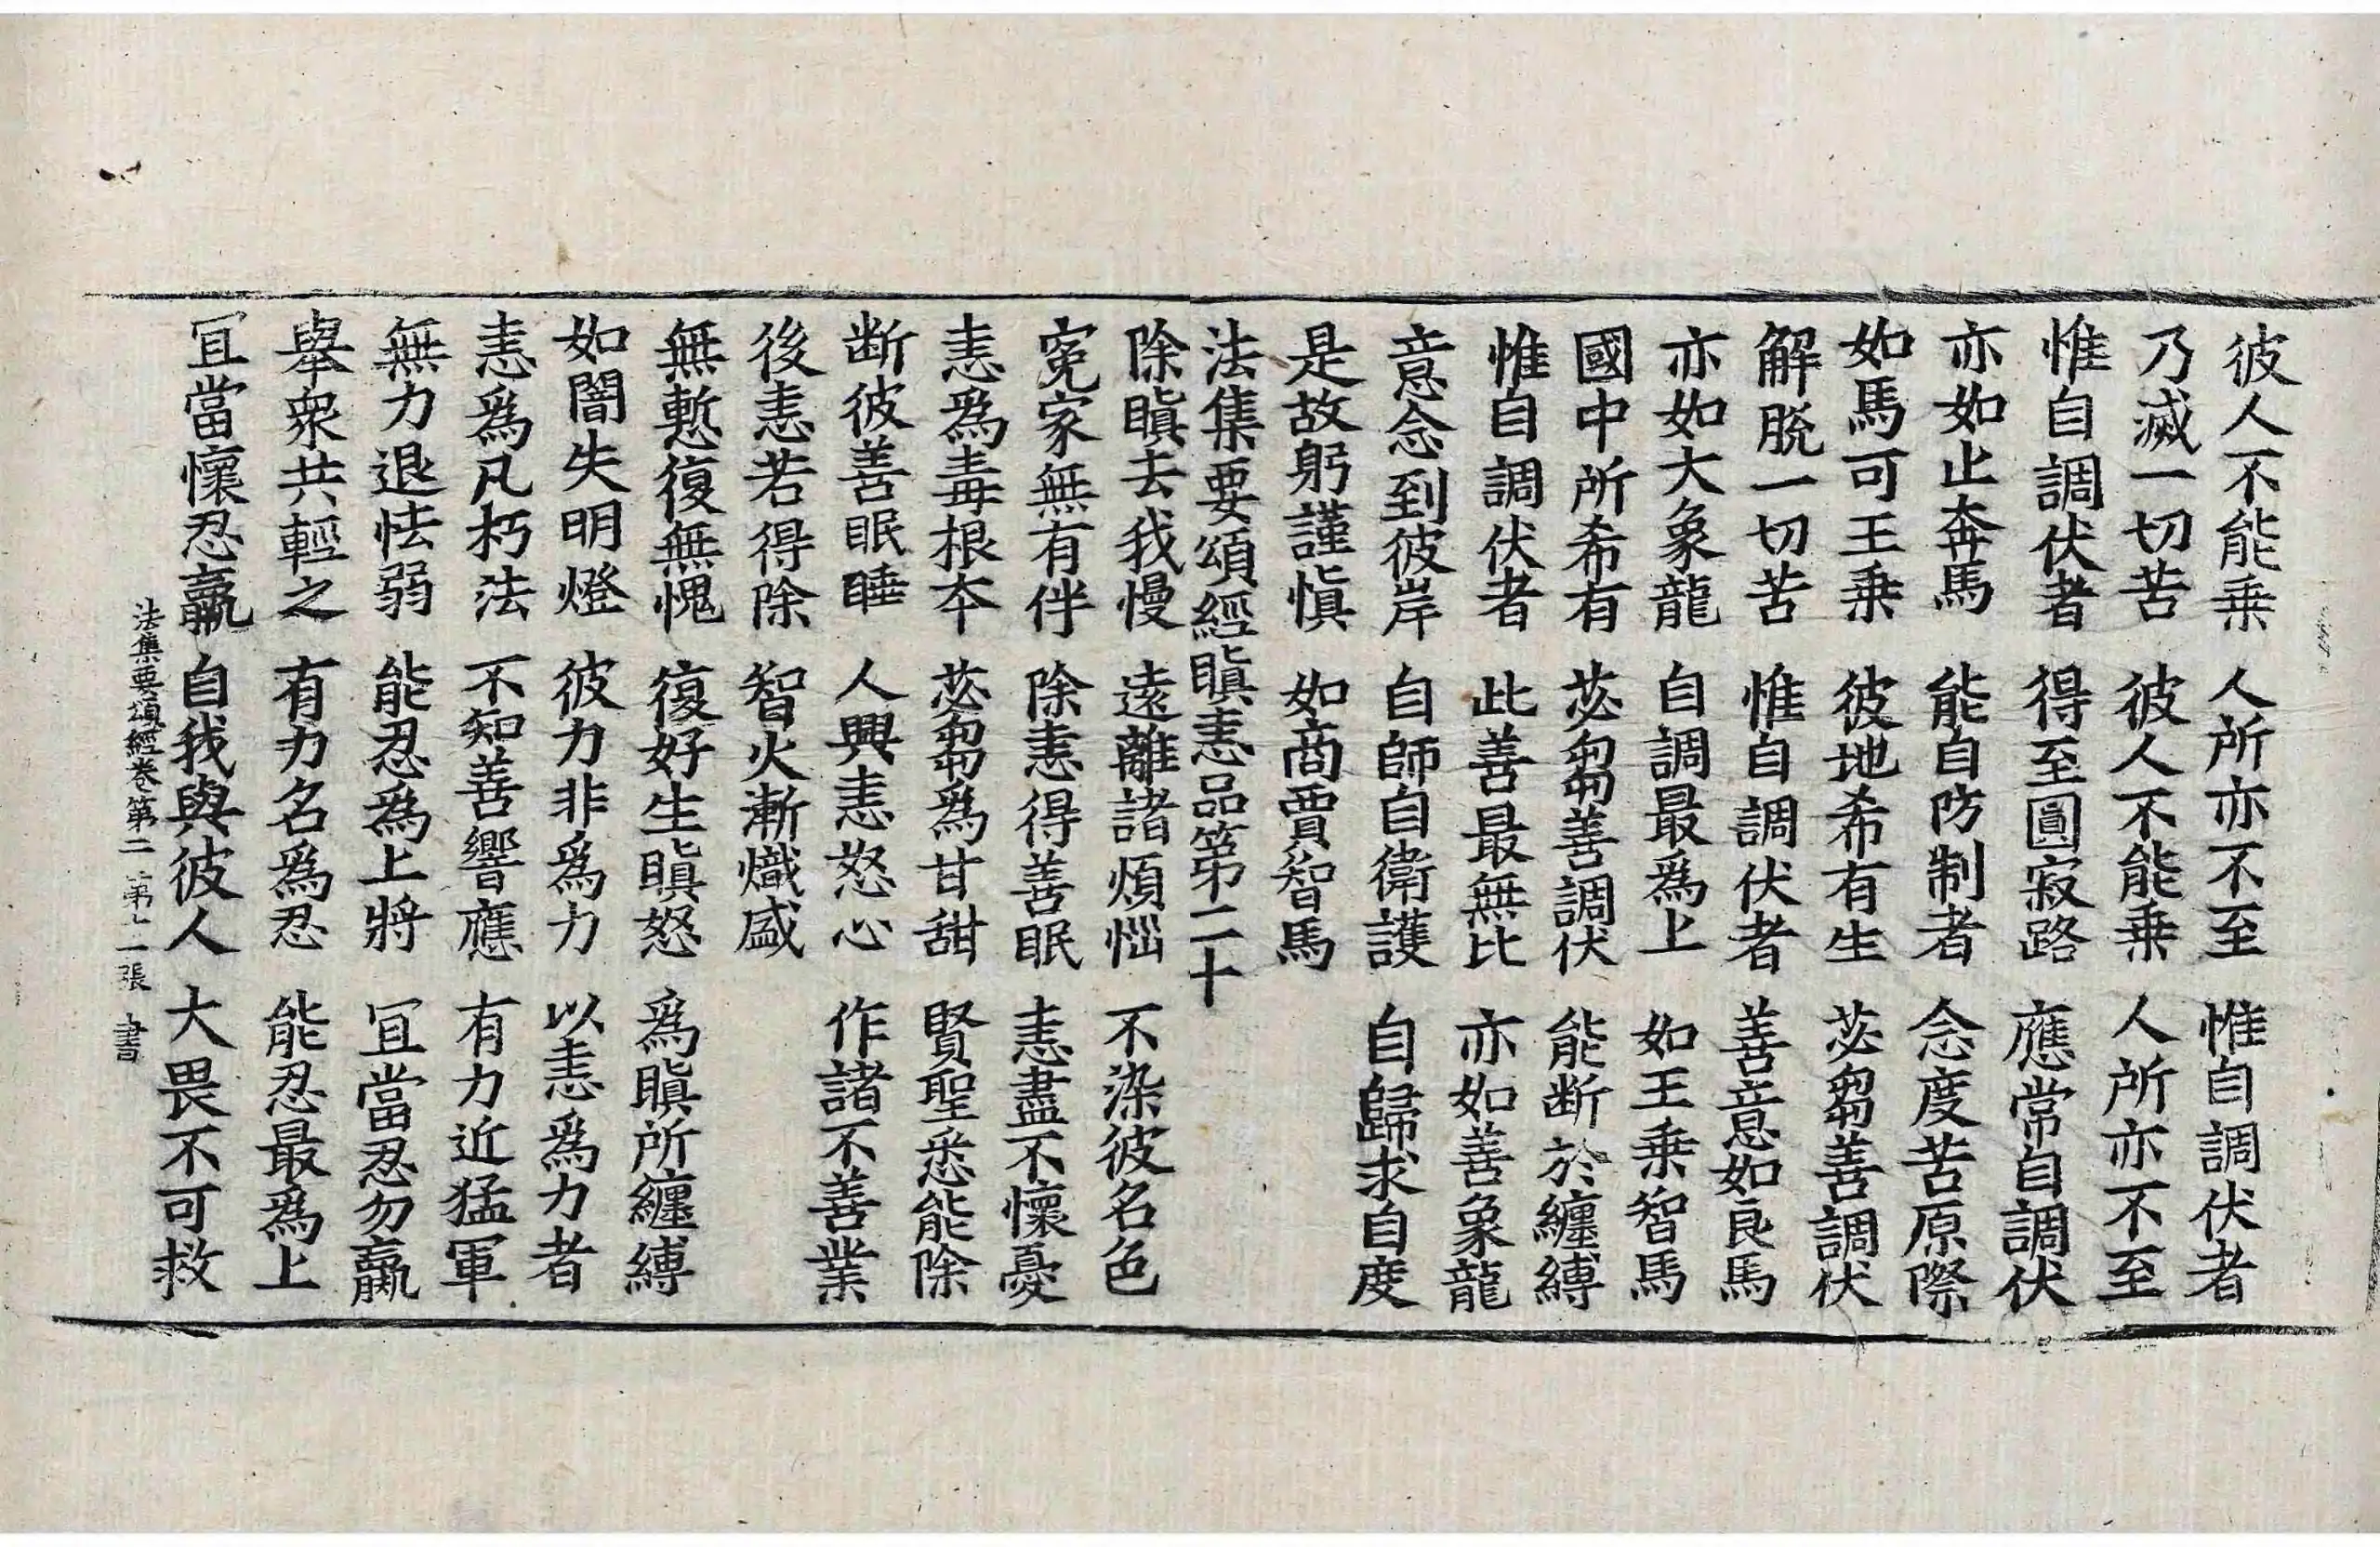 彼人不能乗　人所亦不至　惟自調伏者
乃滅一切苦　彼人不能乗　人所亦不至
惟自調伏者　得至圓寂路　應常自調伏
亦如止奔馬　能自防制者　念度苦原際
如馬可王乗　彼地希有生　苾蒭善調伏
解脫一切苦　惟自調伏者　善意如良馬
亦如大象龍　自調最爲上　如王乗智馬
國中所希有　苾蒭善調伏　能断於纏縛
惟自調伏者　此善最無比　亦如善象龍
意念到彼岸　自師自衛護　自歸求自度
是故躬謹慎　如商賈智馬
法集要頌經瞋恚品第二十
除瞋去我慢　遠離諸煩惱　不染彼名色
寃家無有伴　除恚得善眠　恚盡不懷憂
恚爲毒根本　苾蒭爲甘甜　賢聖悉能除
断彼善眠睡　人興恚怒心　作諸不善業
後恚若得除　智火漸熾盛
無慙復無愧　復好生瞋怒　爲瞋所纏縛
如闇失明燈　彼力非爲力　以恚爲力者
恚爲凡朽法　不知善響應　有力近猛軍
無力退怯弱　能忍爲上將　冝當忍勿羸
舉衆共輕之　有力名爲忍　能忍最爲上
冝當懷忍羸　自我與彼人　大畏不可救
法集要頌經卷第二　第十二張　書